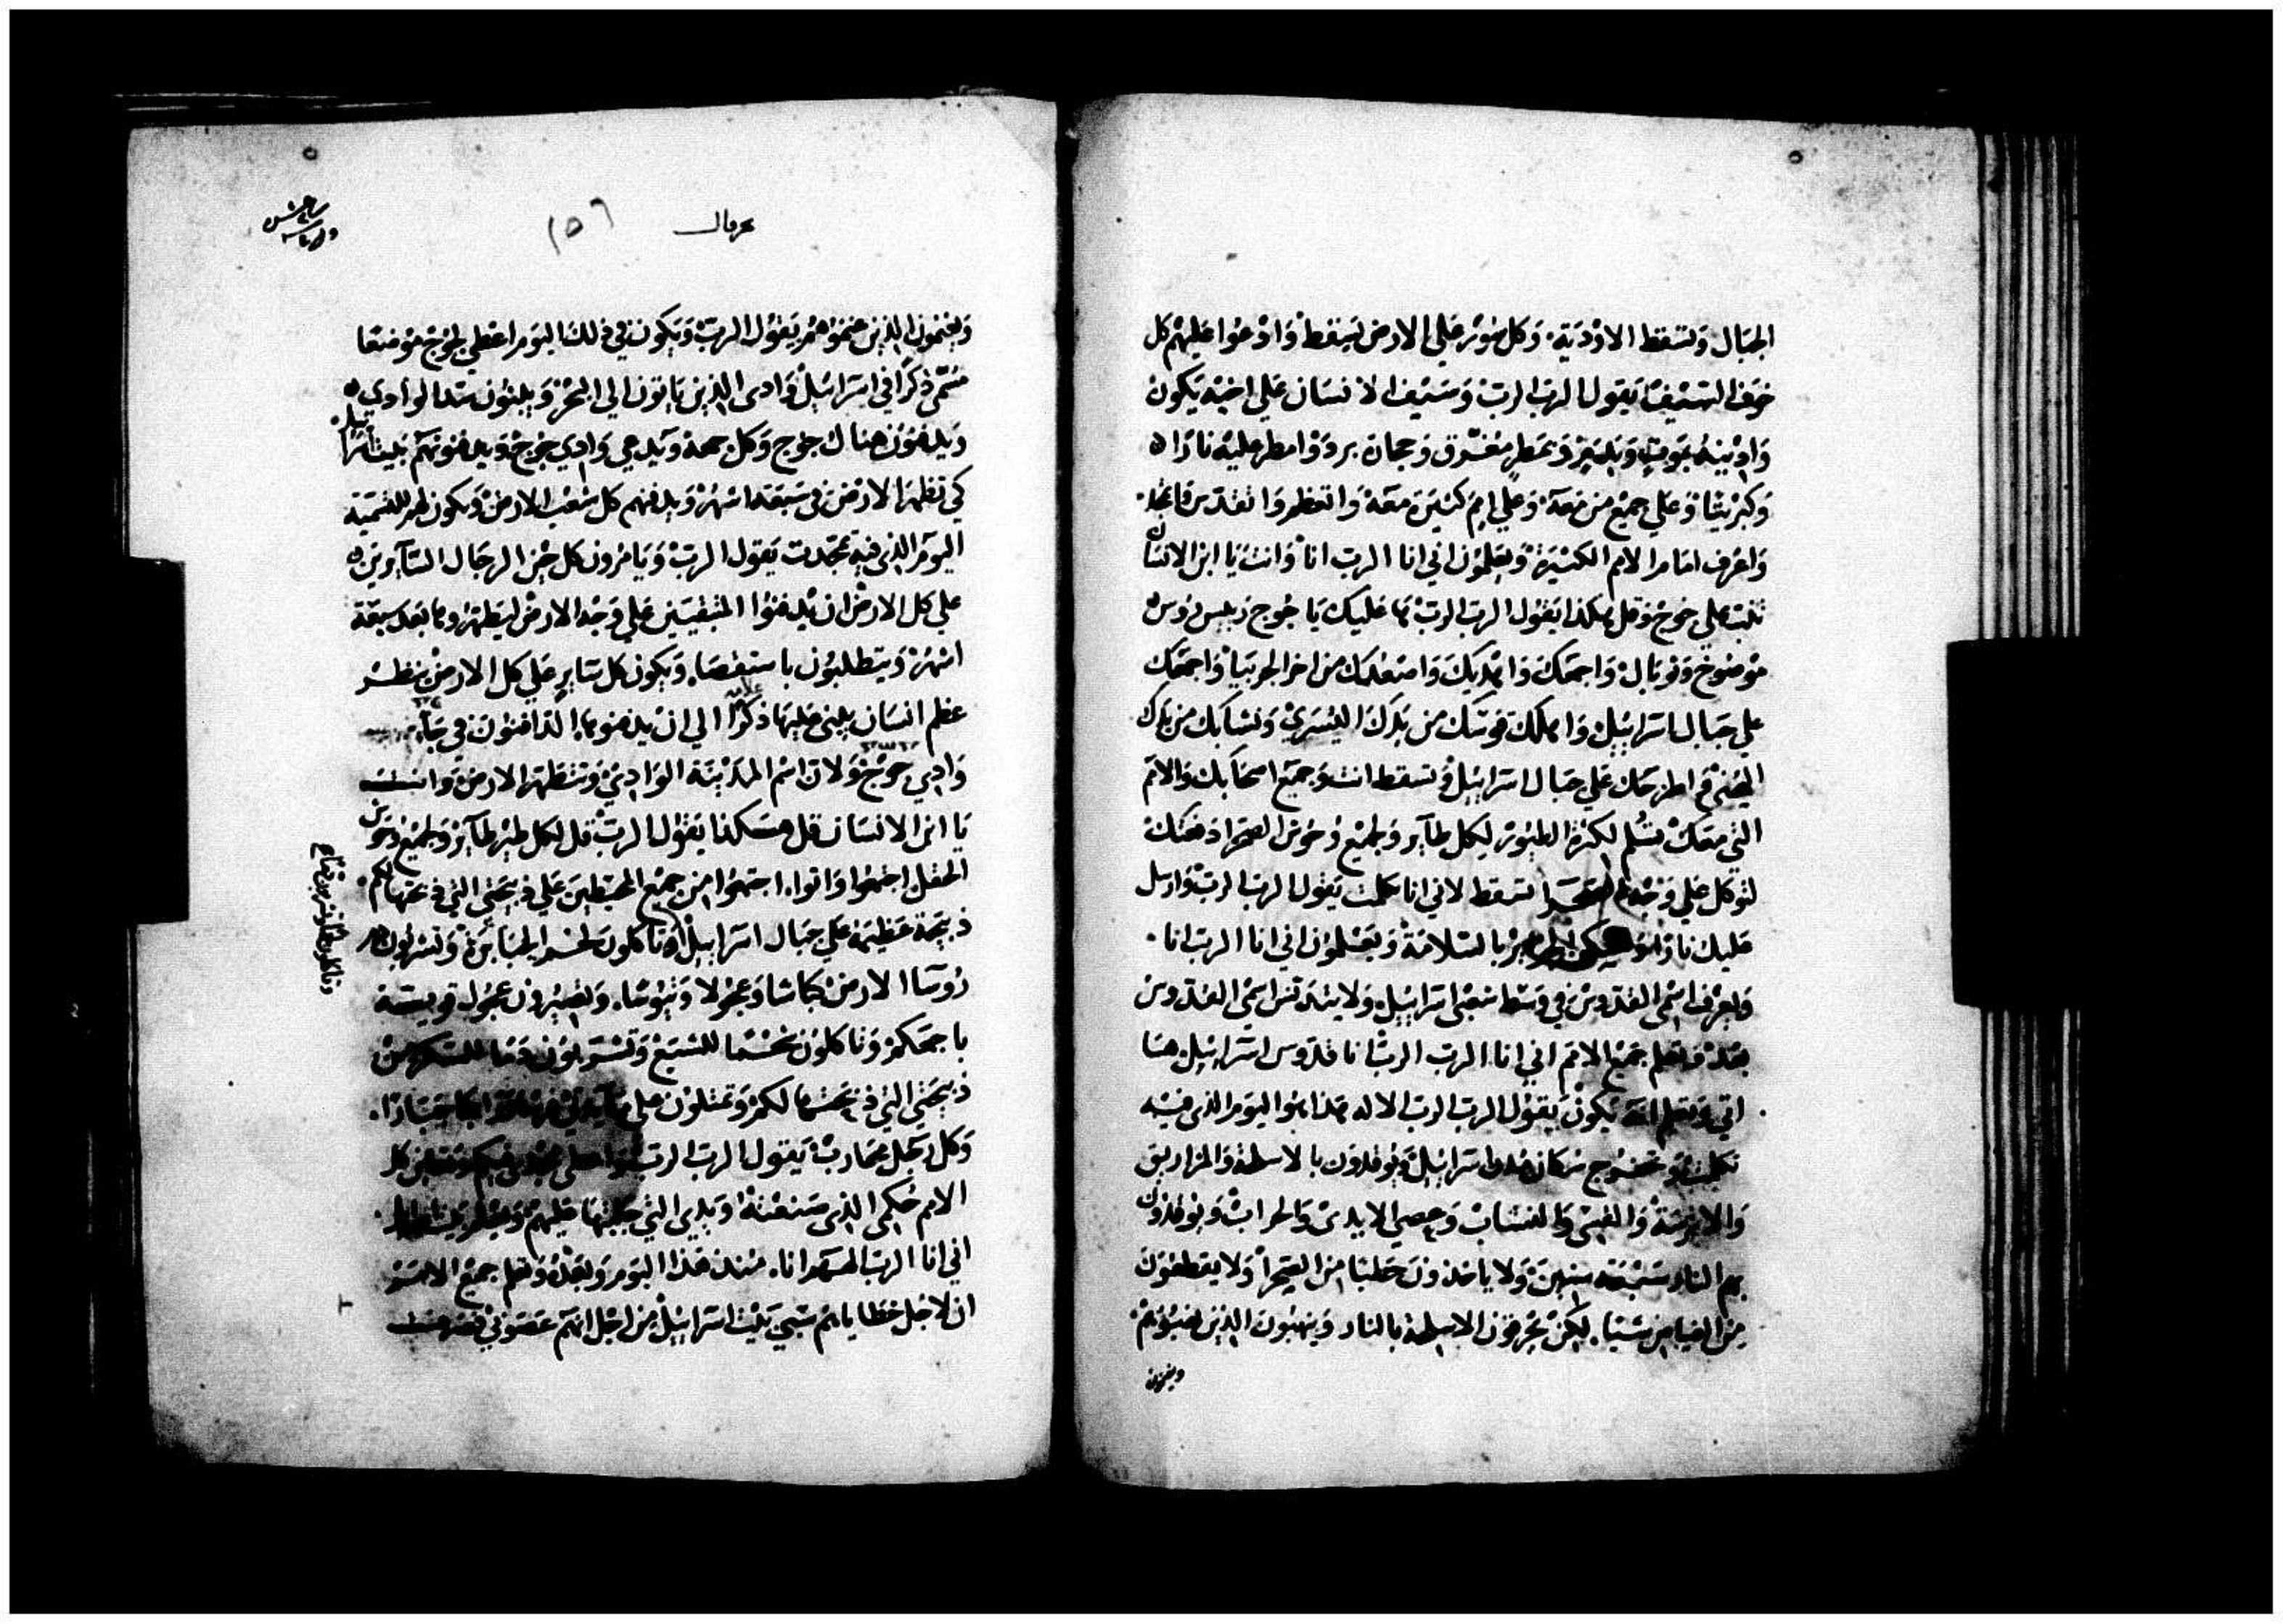 الجبال وتسقط الاودية، وكل سور على الارض يسقط وادعوا عليهم كل
خوف السيف يقول الرب الرب وسيف الانسان على اخيه يكون
وادينه بموت وبدم وبمطر مغرق وحجارة برد وامطر عليه نارا
وكبريتا وعلى جميع من معه وعلى امم كثيرة معه واتعظم واتقدس
واعرف امام الامم الكثيرة ويعلمون اني انا الرب انا وانت يا ابن الانسان
تنب على جوج وقل هكذا يقول الرب الرب ها عليك يا جوج ريس روس
موصوخ وتوبال واجمعك واهديك واصعدك من اخر الجربيا واجمعك
على جبال اسراييل واهلك قوسك من يدك اليسرى ونشابك من يدك
اليمنى واطرحك على جبال اسراييل وتسقط انت وجميع اصحابك والامم
التي معك تسلم لكثرة الطيور لكل طاير ولجميع وحوش الصحرا دفعتك
لتوكل على وجه الصحرا تسقط لاني انا تكلمت يقول الرب الرب وارسل
عليك نارا بالسلامة ويعلمون اني انا الرب انا
ويعرف اسمي القدوس في وسط شعبي اسراييل ولا يتدنس اسمي القدوس
بعد وتعلم جميع الامم اني انا الرب الرب انا قدوس اسراييل ها
اتي وتعلم انه يكون يقول الرب الرب الاله هذا هو اليوم الذي فيه
تكلمت ويخرج سكان مدن اسراييل ويوقدون بالاسلحة والمزاريق
والاترسة والقسي والنشاب وعصي الايدي والحراب ويوقدون
بهم النار سبعة سنين ولا ياخذون حطبا من الصحرا ولا يقطعون
من الغياض شيا، لكن يحرقون الاسلحة بالنار وينهبون الذين نهبوهم
ويغنمون
١٥٦
ويغنمون الذين غنموهم يقول الرب ويكون في ذلك اليوم اعطي لجوج موضعا
مسمى ذكرا في اسراييل وادي الذين ياتون الى البحر ويبنون سد الوادي
ويدفنون هناك جوج وكل جمعه ويدعى وادي جوج ويدفنونهم بيت اسراييل
كي تطهر الارض في سبعة اشهر ويدفنهم كل شعب الارض ويكون لهم للتسمية
اليوم الذي فيه تمجدت يقول الرب ويامرون كل حين الرجال السايرين
على كل الارض ان يدفنوا المتبقيين على وجه الارض ليطهروها بعد سبعة
اشهر ويتطلبون باستقصا، ويكون كل ساير على كل الارض ينظر
عظم انسان يبني عليها ذكرا الى ان يدفنوها الدافنون في
وادي جوج ولان اسم المدينة الوادي وتتطهر الارض وانت
يا ابن الانسان قل هكذا يقول الرب قل لكل طير طاير ولجميع وحوش
الحقل اجتمعوا واتوا، اجتمعوا من جميع المحيطين على ذبيحتي التي ذبحتها لكم
ذبيحة عظيمة على جبال اسراييل تاكلون لحم الجبابرة وتشربون دم
روسا الارض كباشا وعجولا وتيوسا، وتصيرون عجول قويسة
باجمعكم وتاكلون شحما للشبع وتشربون دما للسكر من
ذبيحتي التي ذبحتها لكم وتمتلون على مايدتي جبارا
وكل رجل محارب يقول الرب الرب واعطي مجدي فيكم وتعاين كل
الامم حكمي الذي صنعته ويدي التي جلبتها عليهم وتعلم بيت اسراييل
اني انا الرب الههم انا، منذ هذا اليوم وبعده وتعلم جميع الامم
ان لاجل خطاياهم سبي بيت اسراييل من اجل انهم عصوني فصرفت